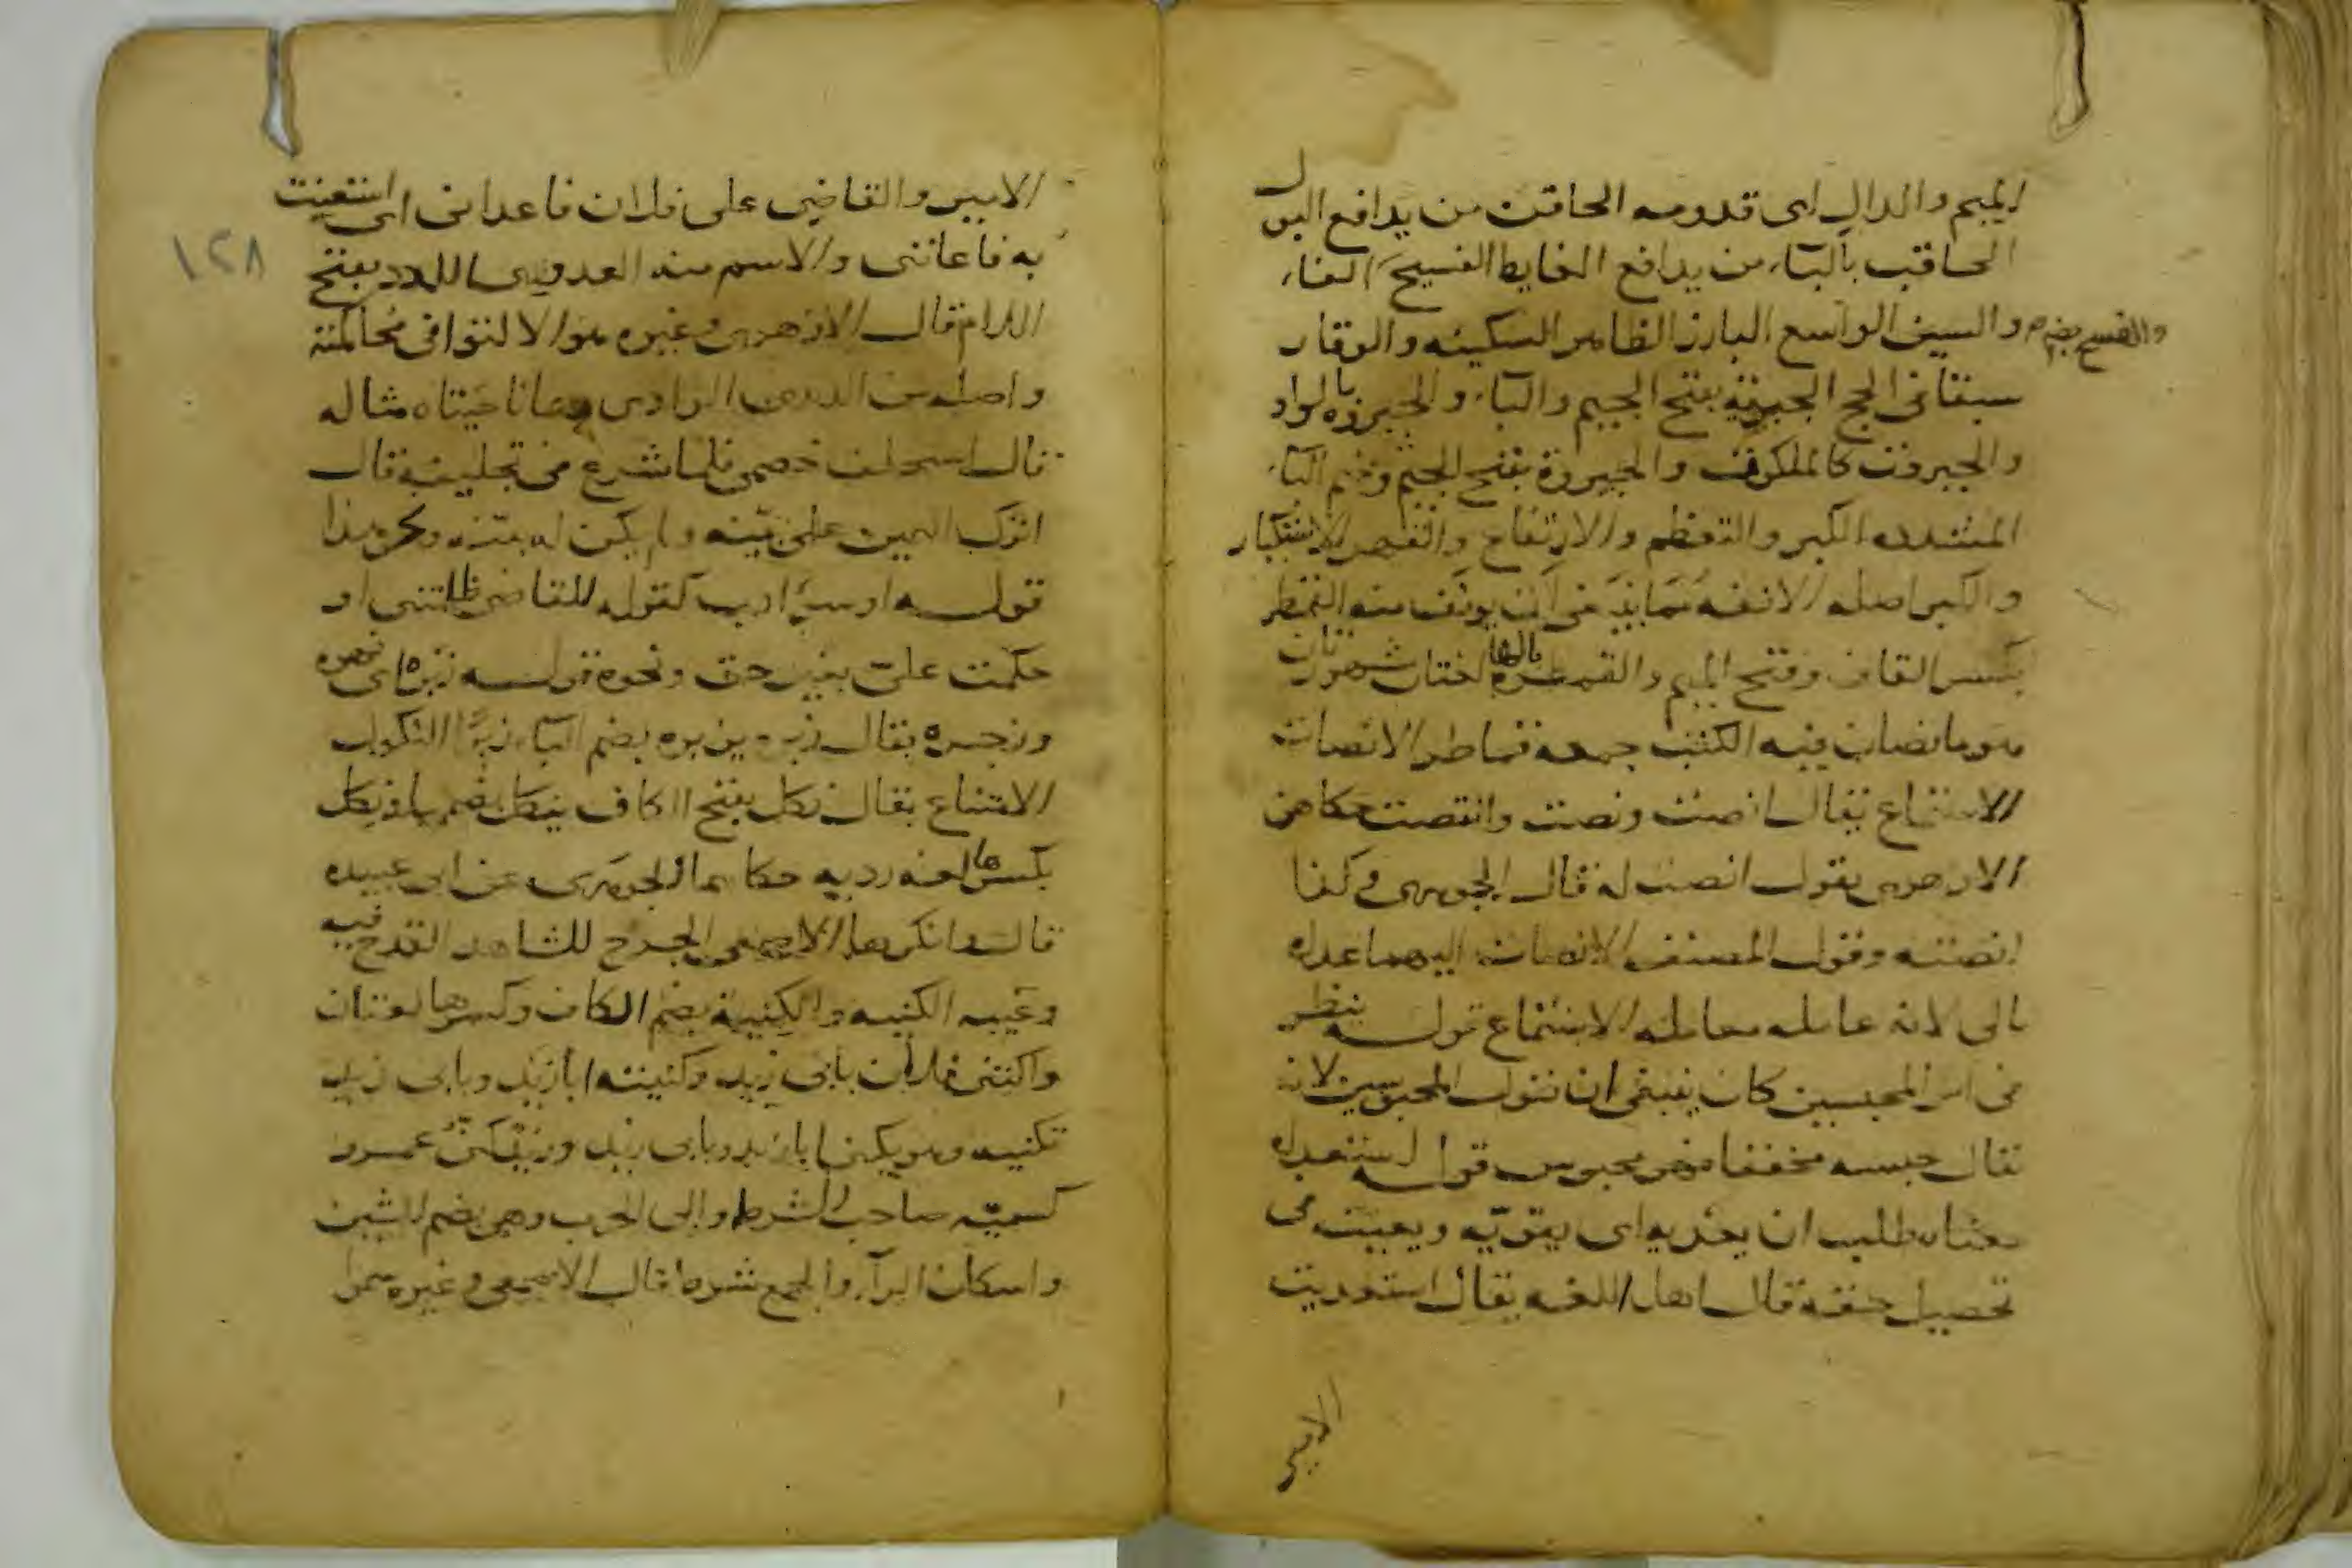 الميم والدال اى قدومه الحاقن من يدافع البول
الحاقب بالبآء من يدافع الغايط الفسيح الفاء
والفسح بضم
والسين الواسع البارز الظاهر السكينه والوقار
سبقتا فى الحج الجبرية بفتح الجيم والبآء والجبروة بالواو
والجبروت كالملكوت والجبورة بفتح الجيم وضم البآء
المشدده الكبر والتعظم والارتفاع والقهر الاستكبار
والكبر اصله الانفه مما يوتف منه القمطر
بكسر القاف وفتح الميم والقمطرة بالهاء لغتان مشهورتان
هو ما تصان فيه الكتب جمعه قماطر الانصات
الاستماع يقال انصت ونصت وانتصت حكاهن
الازهرى يقول انصت له قال الجوهرى وكذا
انصته وقول المصنف الانصات اليهما عداه
بالى لانه عامله معاملة الاستماع قوله ينظر
فى امر المحبسين كان ينبغى ان يقول المحبوسين لانه
يقال حبسه مخففا فهو محبوس قوله استعداه
معناه طلب ان يعديه اى يقويه ويعينه فى
تحصيل حقه قال اهل اللغه يقال استعديت
الامير
١٢٨
الامير والقاضى على فلان فاعدانى اى استعنت
به فاعاننى والاسم منه العدوى اللدد بفتح
اللام قال الازهرى وغيره هو الالتوا فى محاكمته
واصله من الوادى وهما ناحيتاه مثاله
قال استحلف خصمى فلما شرع فى تحليفه قال
اترك اليمين على بينه ولم يكن له بينه ونحو هذا
قوله او سآء ادب كقوله للقاضى ظلمتنى او
حكمت علىّ بغير حق ونحوه قوله زبره اى نهره
وزجره يقال زبره يزبره بضم البآء زبرًا النكول
الامتناع يقال نكل بفتح الكاف ينكل بضمها ونكل
بكسرها لغه رديه حكاهما الجوهرى عن ابى عبيده
قال وانكرها الاصمعى الجرح للشاهد القدح فيه
وعيبه الكنيه والكنية بضم الكاف وكسرها لغتان
واكتنى فلان بابى زيد وكنيته ابا زيد وبابى زيد
تكنيه وهو يكنى ابا زيد وبابى زيد وزيد كنىّ عمرو
كسميّه صاحب الشرط والى الحرب وهى بضم الشين
واسكان الرآء والجمع شرط قال الاصمعى وغيره سموا